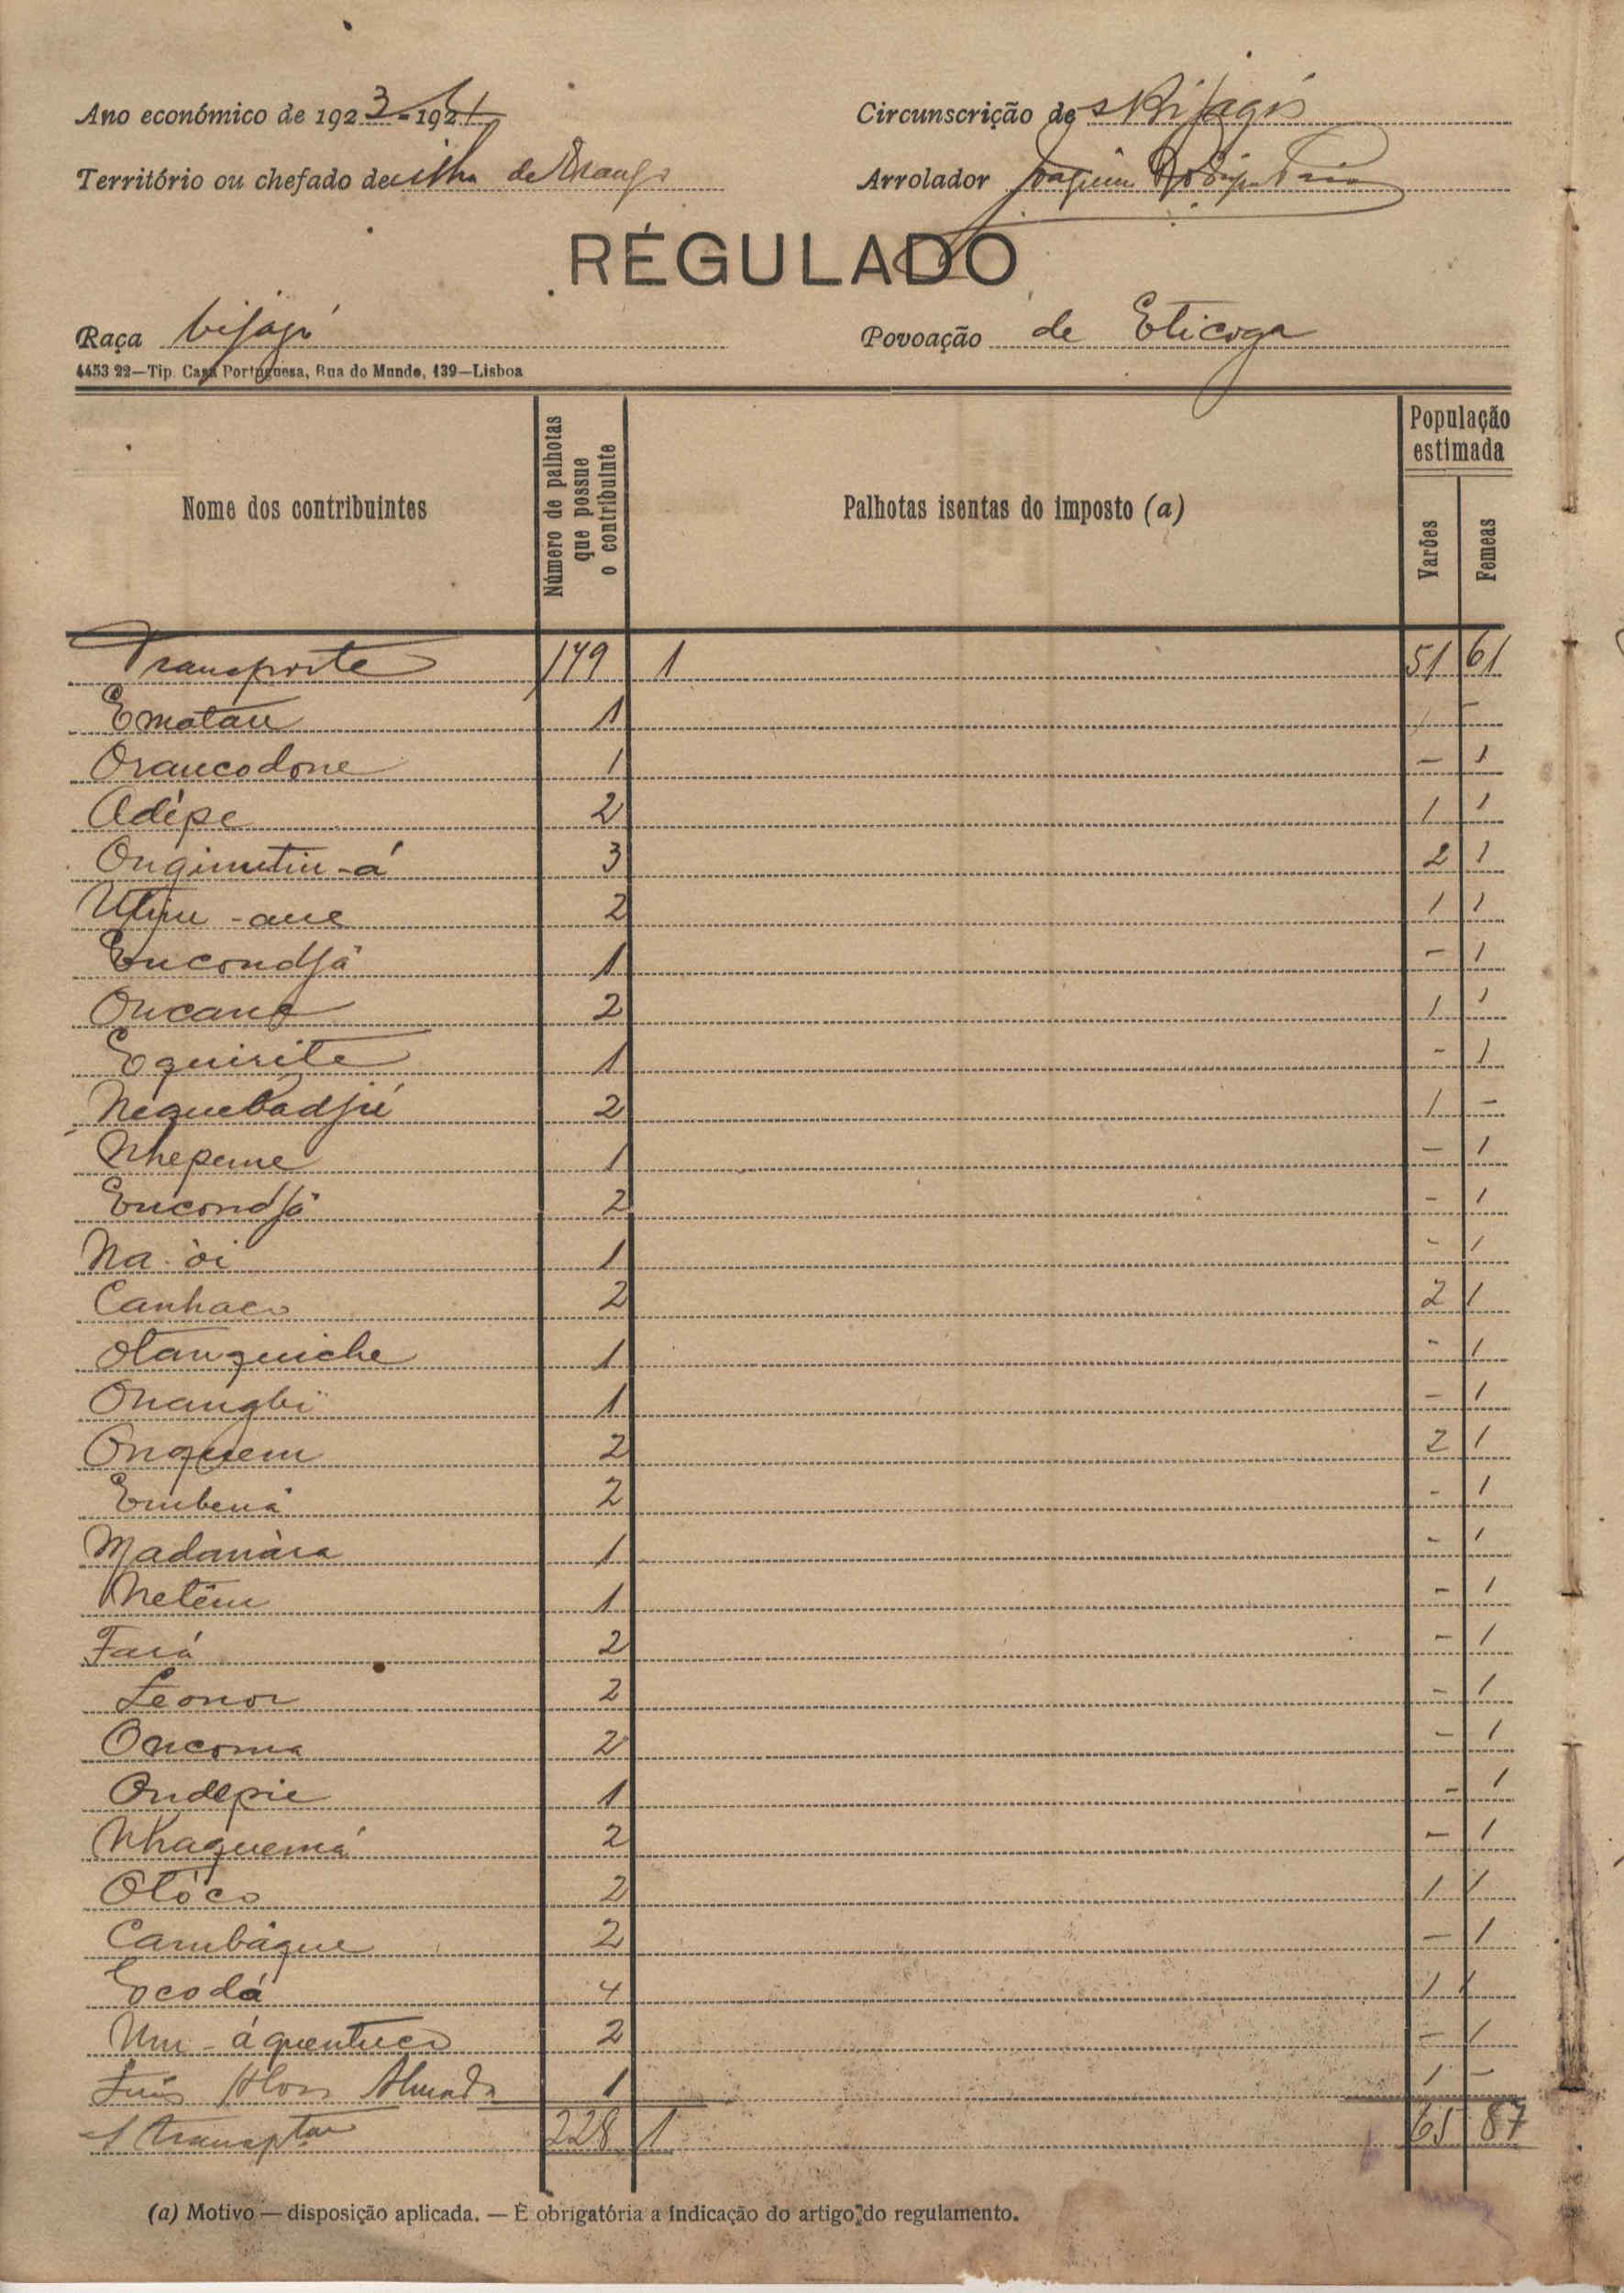 Ano económico de 1923-1924
Circunscrição de s Bijagós
Território ou chefado de ilha de Orango
Arrolador Joaquim
RÉGULADO
Raça bijagó
Povoação de Eticoga
4453 22—Tip. Casa Portuguesa, Rua do Mundo, 139—Lisboa
Nome dos contribuintes Número de palhotas que possue o contribuinte Palhotas isentas do imposto (a) População estimada Varões Femeas
Transporte 179 1 51 61
Ematau 1 1 -
Oraucodone 1 - 1
Adépe 2 1 1
Ongimutiu-á 3 2 1
2 1 1
Encondjá 1 - 1
Oucane 2 1 1
Equirite 1 - 1
Nequebadjié 2 1 -
Nhepeme 1 - 1
Encondjá 2 - 1
Na-òi 1 - 1
Canhaco 2 2 1
Otanguiche 1 - 1
Onangbi 1 - 1
Onquem 2 2 1
Embená 2 - 1
Madanára 1 - 1
Netém 1 - 1
Fará 2 - 1
Leonor 2 - 1
Oncoma 2 - 1
Ondepie 1 - 1
Nhaquemá 2 - 1
Otóco 2 1 1
Cambáque 2 - 1
Ecodá 4 1 1
Um-áquentuco 2 - 1
Almada 1 1 -
A transptar 228 1 65 87
(a) Motivo — disposição aplicada. — É obrigatória a indicação do artigo do regulamento.